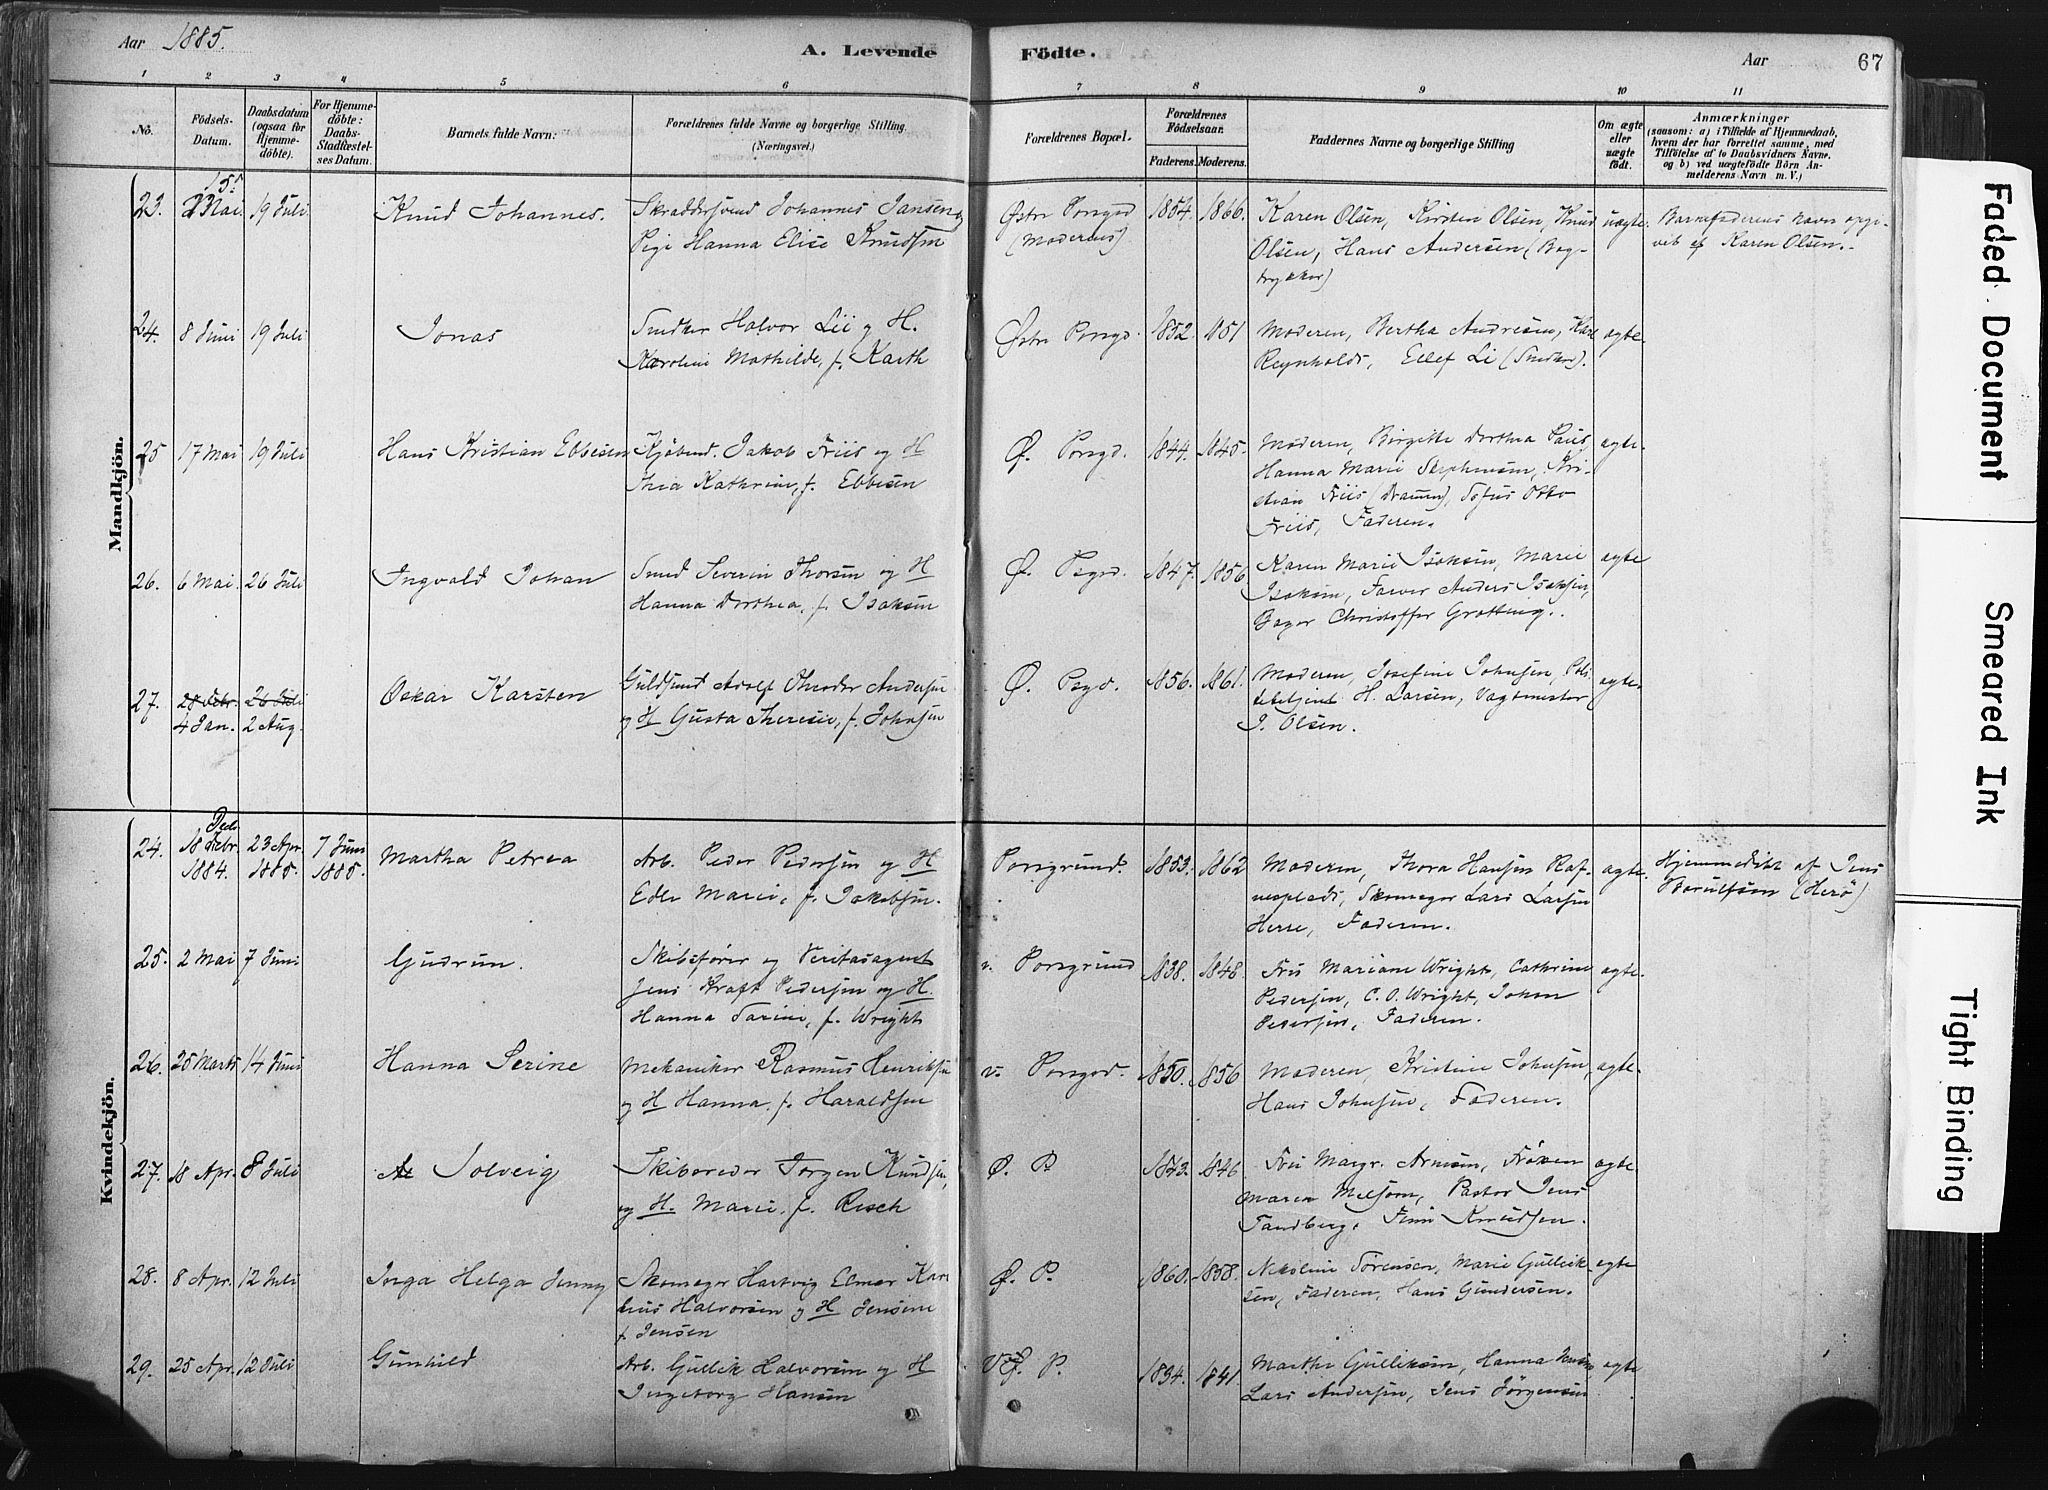 Aar 1885.
A. Levende Födte.
Aar
67
1 2 3 4 5 6 7 8 9 10 11
No.
Födsels-Datum.
Daabsdatum (ogsaa for Hjemmedöbte).
For Hjemmedöbte: Daabs-Stadfæstelses Datum.
Barnets fulde Navn:
Forældrenes fulde Navne og borgerlige Stilling. (Næringsvei.)
Forældrenes Bopæl.
Forældrenes Födselsaar.
Faderens. Moderens.
Faddernes Navne og borgerlige Stilling
Om ægte eller uægte födt.
Anmærkninger
(saasom: a) i Tilfælde af Hjemmedaab, hvem der har forrettet samme, med Tilföielse af to Daabsvidners Navne. og b) ved uægtefödte Börn Anmelderens Navn m. V.)
Mandkjön.
23. 15. Mai 19 Juli Knud Johannes. Skræddersvend Johannes Jansen og Pige Hanna Elise Knudsen Østre Porsgrd (Moderens) 1854. 1866. Karen Olsen, Kirsten Olsen, Knud Olsen, Hans Andersen (Bogtrykker) uægte. Barnefaderens navn opgivet af Karen Olsen.
24. 8 Juni 19 Juli Jonas Snedker Halvor Lie og H. Karoline Mathilde, f. Karth Østre Porsgd. 1852. 1851 Moderen, Bertha Andresen, Reynholdt, Ellef Li (Snedker). ægte.
25 17 Mai 19 Juli Hans Kristian Ebbesen Kjöbmd. Jakob Friis og H Thea Kathrine, f. Ebbesen Ø. Porsgd. 1844. 1845. Moderen, Birgitte Dorthea Paus, Hanna Marie Stephensen, Kristian Friis (Drammen), Sofus Otto Friis, Faderen. ægte.
26. 6 Mai. 26 Juli Ingvald Johan Smed Severin Thorsen og H Hanna Dorthea, f. Isaksen Ø. Psgd. 1847. 1856. Karen Marie Isaksen, Marie Isaksen, Farver Anders Isaksen, Bager Christoffer Grotteng. ægte
27. 28 Febr. 4 Jan. 26 Juli 2 Aug. Oskar Karsten Guldsmed Adolf Theodor Andersen og H Gusta Theresie, f. Johnsen Ø. Psgd. 1856. 1861. Moderen, Josefine Johnsen, Politibetjent H. Larsen, Vagtmester J. Olsen. ægte.
Kvindekjön.
24. 18 Febr 1884. 23 Apr. 1885. 7 Juni 1885. Martha Petrea Arb. Peder Pedersen og H Edle Marie, f. Jakobsen. Porsgrund. 1853. 1862 Moderen, Thora Hansen Rafnesplads, Skomager Lars Larsen Herre, Faderen. ægte. Hjemmedöbt af Jens (Herö)
25. 2 Mai 7 Juni Gudrun. Skibsförer og Veritasagent Jens Kraft Pedersen og H. Hanna Tarine, f. Wright v. Porsgrund 1838. 1848. Fru Mariane Wright, Cathrine Pedersen, C. O. Wright, Johan Pedersen, Faderen. ægte.
26. 25 Marts 14 Juni Hanna Serine Mekaniker Rasmus Henriksen og H Hanna, f. Haraldsen v. Porsgrd. 1850. 1856 Moderen, Kristine Johnsen, Hans Johnsen, Faderen. ægte.
27. 18 Apr. 8 Juli Solveig Skibsreder Jörgen Knudsen, og H. Marie, f. Resch Ø. P. 1843. 1846 Fru Margr. Arnesen, Fröken Maren Melsom, Pastor Jens Tandberg, Finn Knudsen. ægte
28. 8 Apr. 12 Juli Inga Helga Jenny Skomager Hartvig Elmar Karelius Halvorsen og H Jensine f. Jensen Ø. P. 1860. 1858. Nikoline Sörensen, Marie Gulliksen, Faderen, Hans Gundersen. ægte
29. 25 Apr. 12 Juli Gunhild Arb. Gullik Halvorsen og H Ingeborg Hansen V. P. 1834. 1841. Marthe Gulliksen, Hanna Lars Andersen, Jens Jörgensen ægte
Faded Document
Smeared Ink
Tight Binding